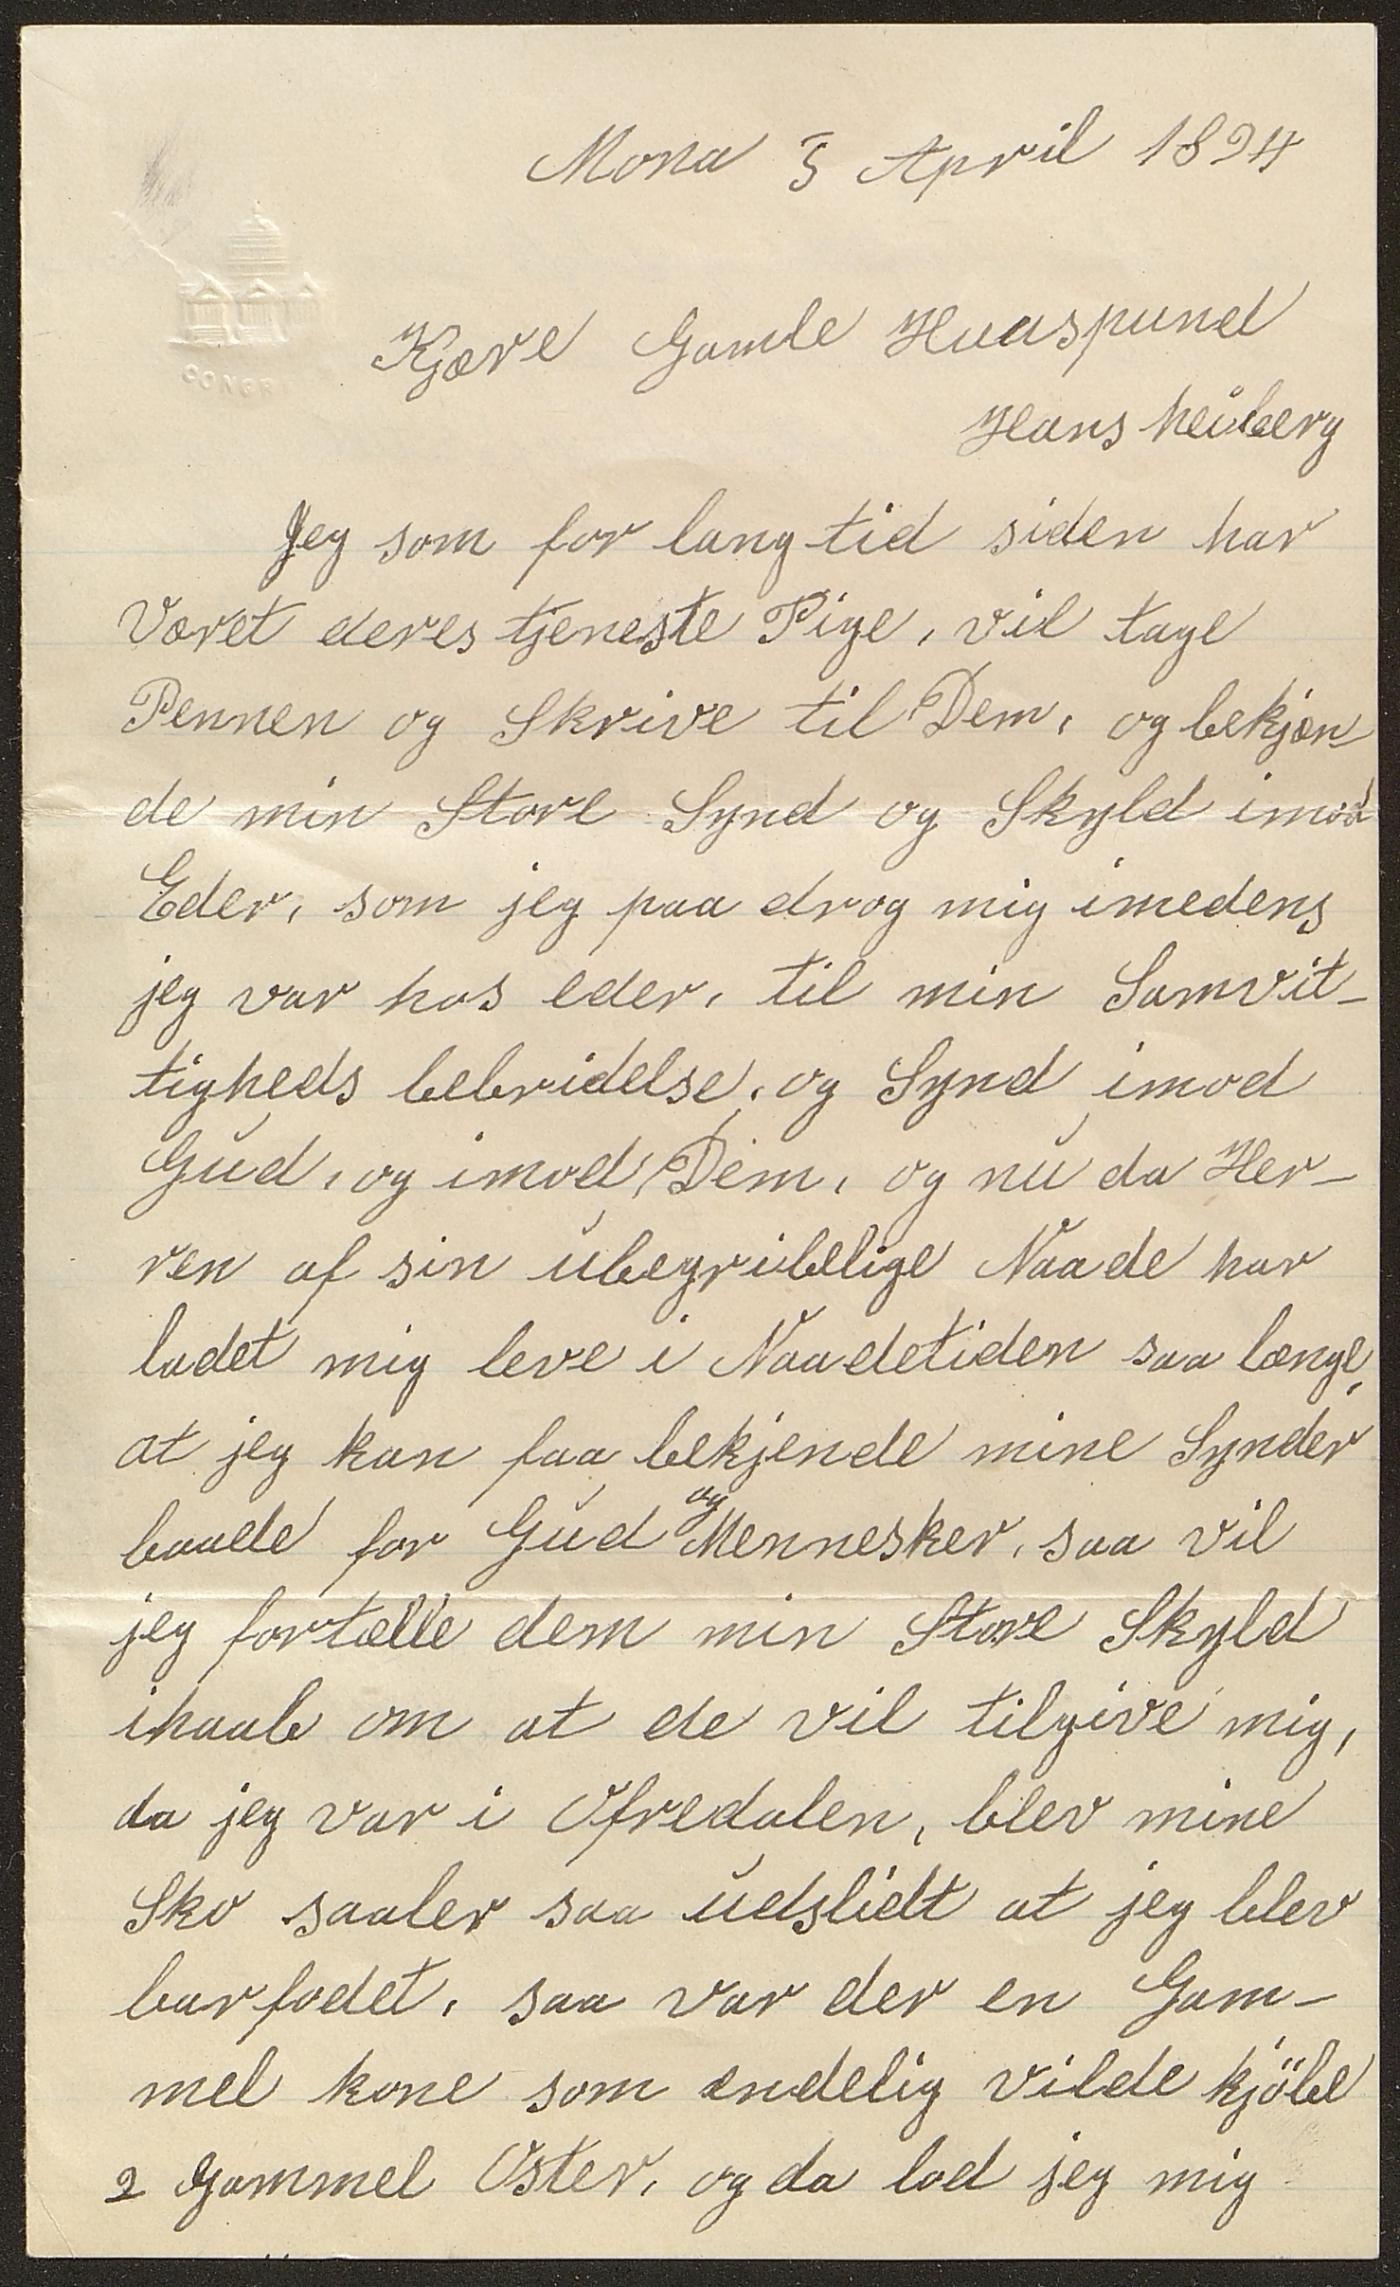 Mona 3 April 1894
CONGR
Kjære Gamle Huuspund
Hans heiberg
Jeg som for lang tid siden har
Været deres tjeneste Pige, vil tage
Pennen og Skrive til Dem, og bekjæn-
de min Store Synd og Skyld imod
Eder, som jeg paa drog mig imedens
jeg var hos eder, til min Samvit-
tigheds bebridelse, og Synd imod
Gud, og imod Dem, og nu da Her-
ren af sin ubegribelige Naade har
ladet mig leve i Naadetiden saa længe,
at jeg kan faa bekjende mine Synder
baade for Gud og Mennesker, saa vil
jeg fortælle dem min Store Skyld
ihaab om at de vil tilgive mig,
da jeg var i Ofredalen, blev mine
Sko saaler saa udslidt at jeg blev
barfodet, saa var der en Gam-
mel kone som endelig vilde kjöbe
2 Gammel Oster, og da lod jeg mig